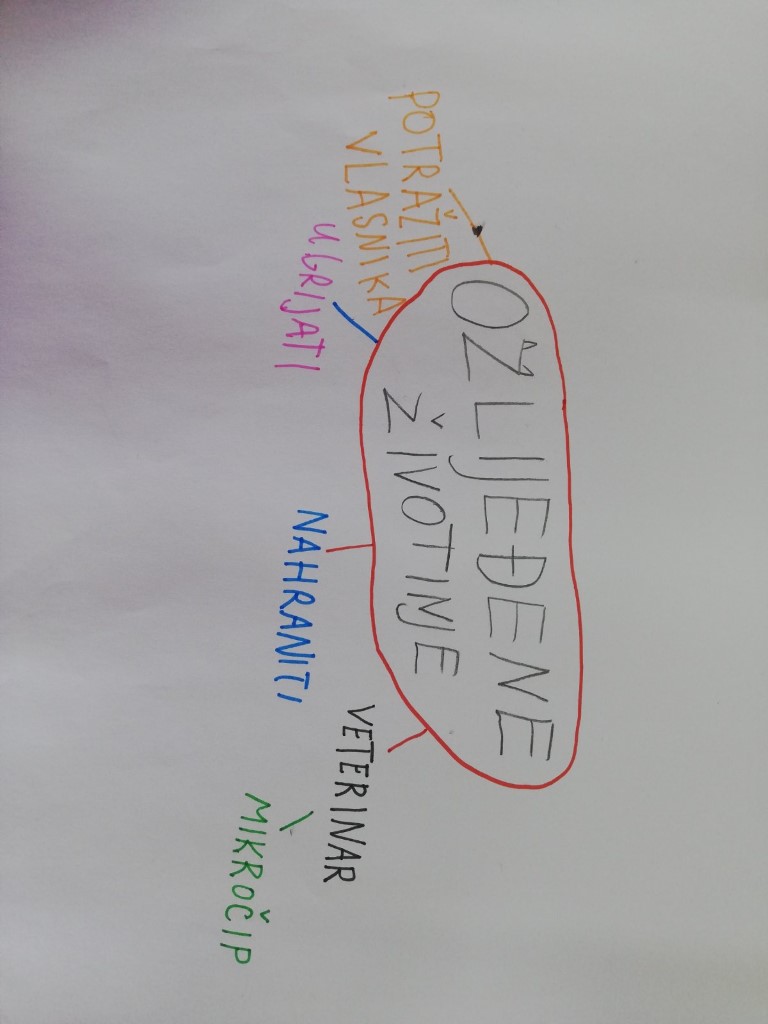 OZLIJEĐENE
ŽIVOTINJE
POTRAŽITI
VLASNIKA
UGRIJATI
NAHRANITI
VETERINAR
MIKROČIP